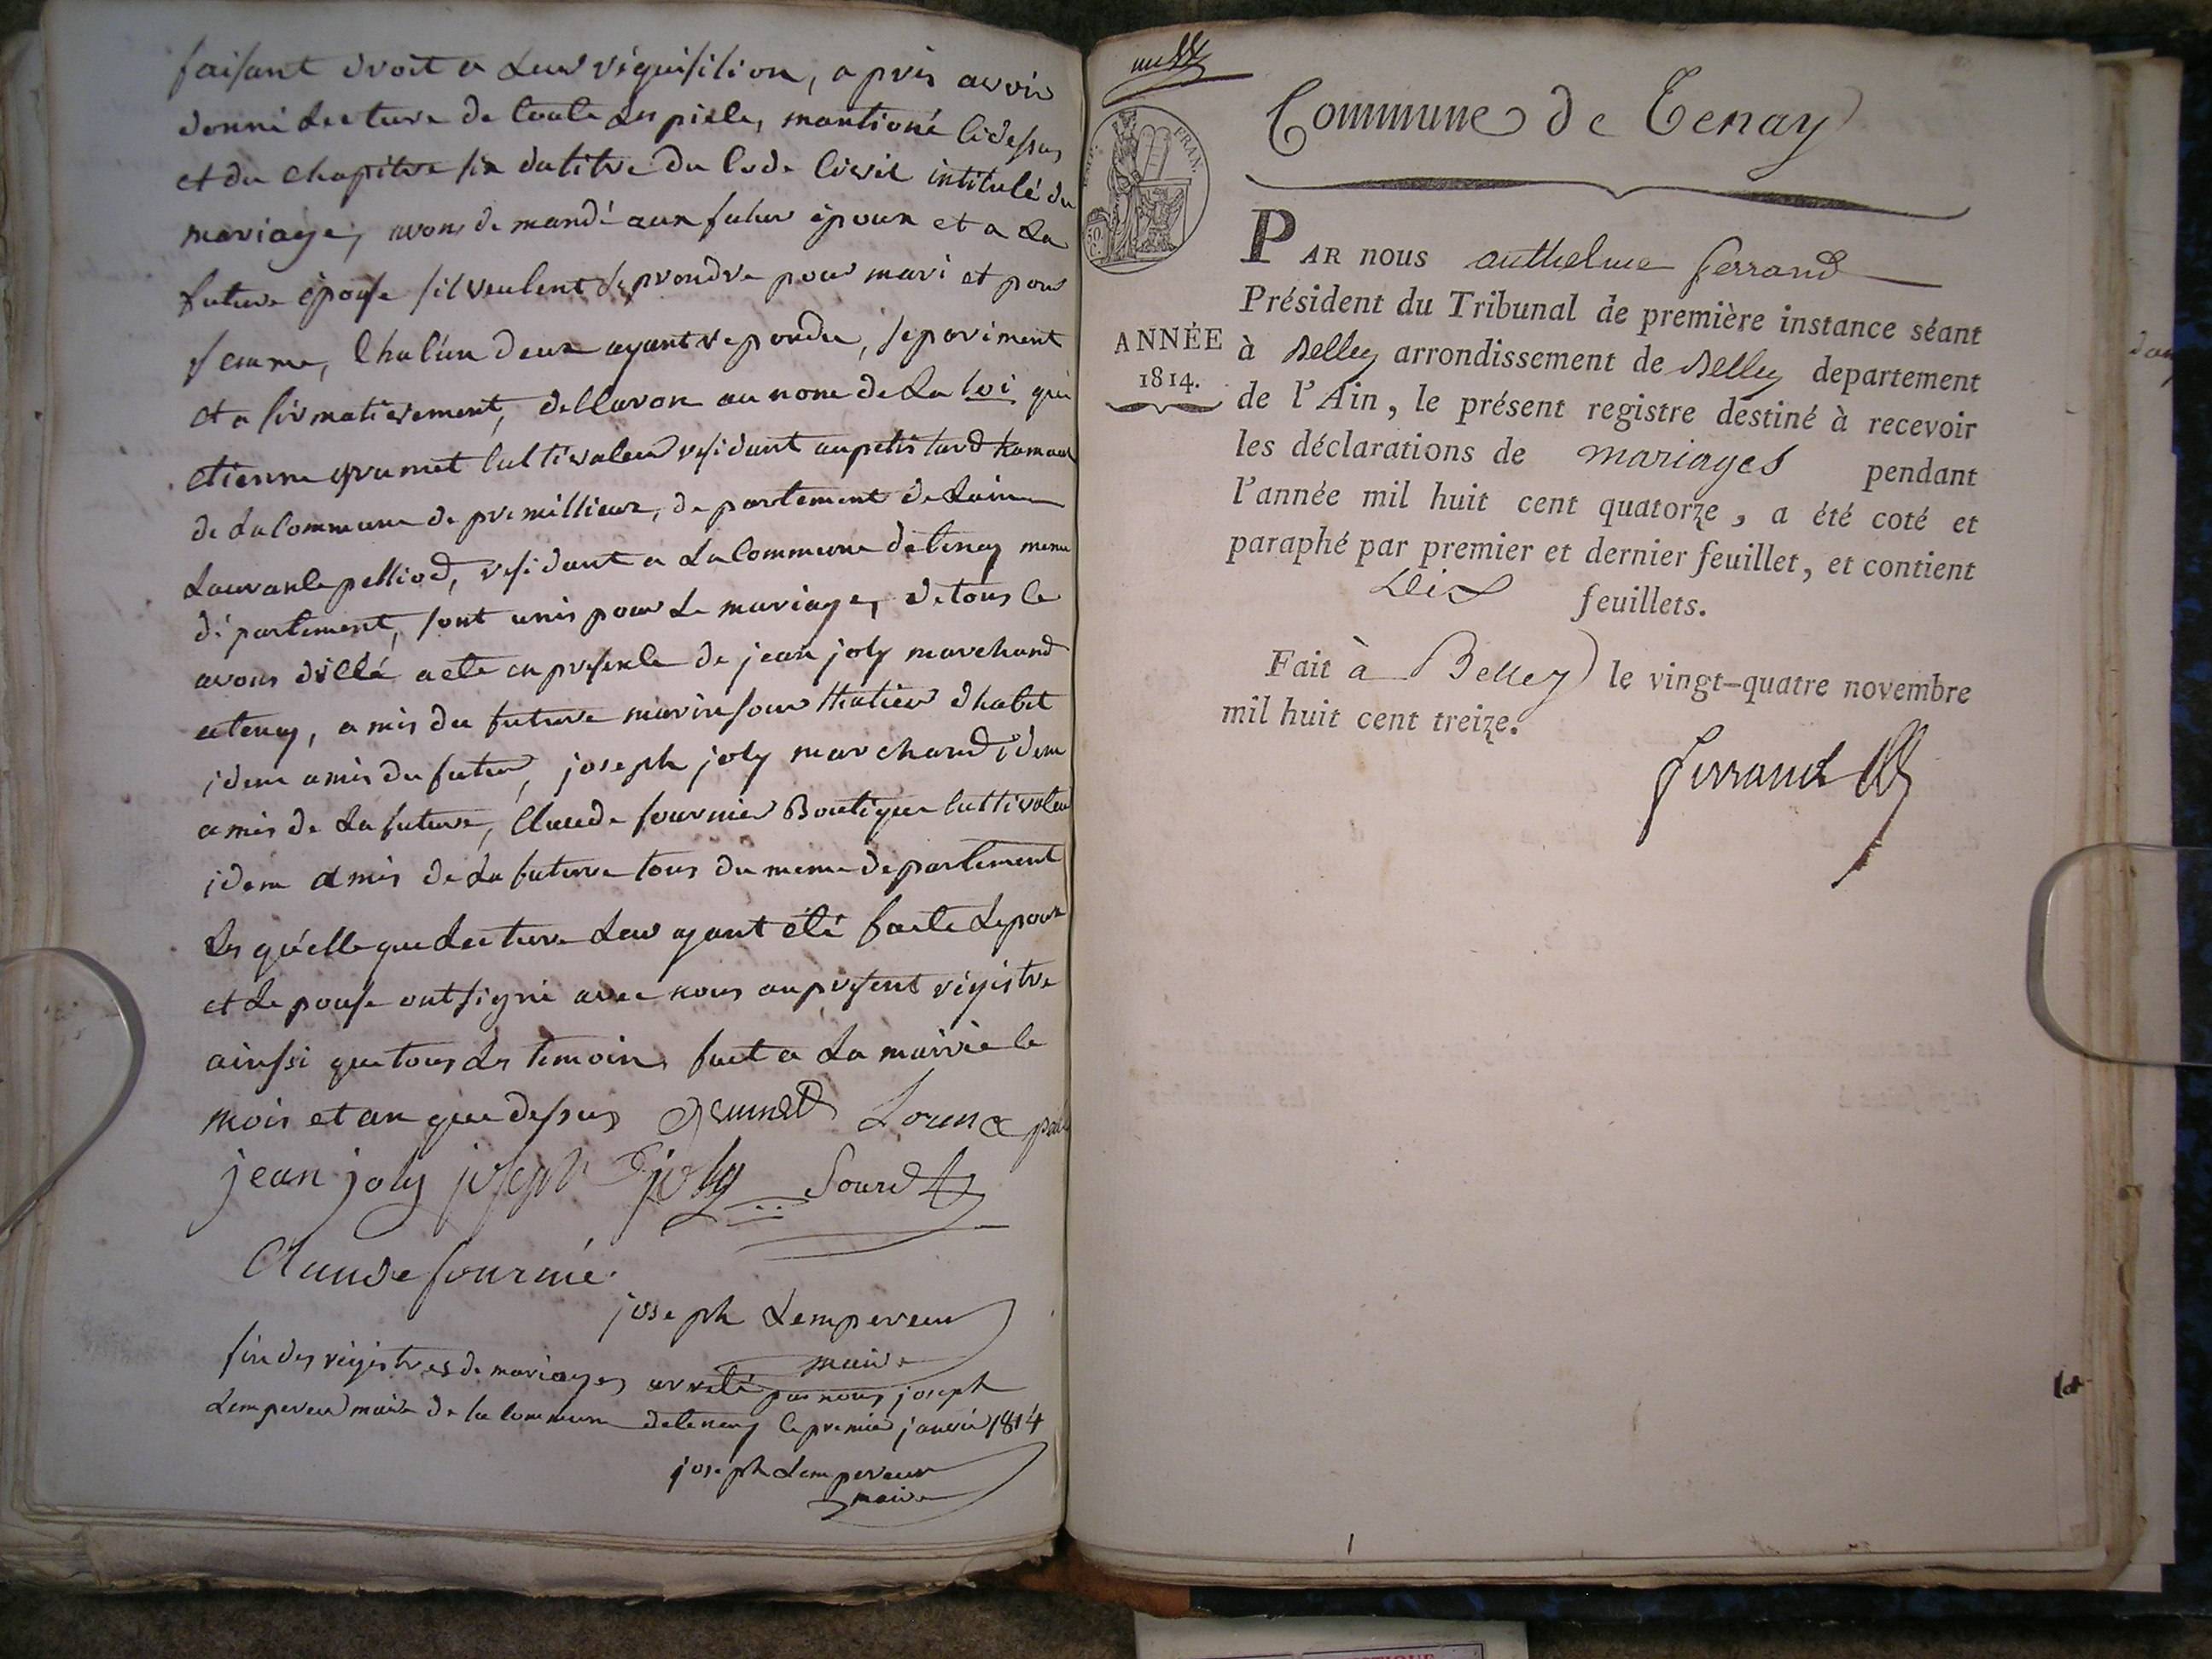 faisant droit a leur réquisition, apprès avoir
donné lecture de toute les pièce, mantioné cidessus
et du chapitre six dutitre du Code Civil intitulé du
mariage, avons demandé aux futur époux et a la
future épouse sil veulent se prendre pour mari et pour
femme, Chacun deux ayant repondu, séparément
et afirmativement, déclaron au nom de la loi que
etienne grumet cultivateur résidant au petit hameau
de la Commune de premillieux, departement de Lain
Laurance pelliod, residant a la Commune de tenay meme
département, sont unis pour le mariage, de tous ce
avons dressé acte en presence de jean joly marchand
a tenay, amis du future d'habit
idem amis du futur, joseph joly marchand idem
amis de la future, Claude fournier Boutique cultivateur
idem amis de la future tous du meme departement
les quelle que lecture leur ayant été faite lepoux
et lepouse ont signé avec nous au présent régistre
ainssi que tous les temoin, fait a la mairie le
mois et an que dessus Grumet Lorence pell
jean joly joseph joly Sourd
Claude fournié
joseph Lempereur
maire
fin des régistres de mariages arreté par nous joseph
Lempereur maire de la commune de tenay le premié janvié 1814
joseph Lempereur
maire
Commune de Tenay
FRAN.
50.
C.
PAR nous anthelme ferrand
Président du Tribunal de première instance séant
ANNÉE
1814.
à Belley arrondissement de Belley departement
de l'Ain, le présent registre destiné à recevoir
les déclarations de mariages pendant
l'année mil huit cent quatorze, a été coté et
paraphé par premier et dernier feuillet, et contient
Dix feuillets.
Fait à Belley le vingt-quatre novembre
mil huit cent treize.
ferrand